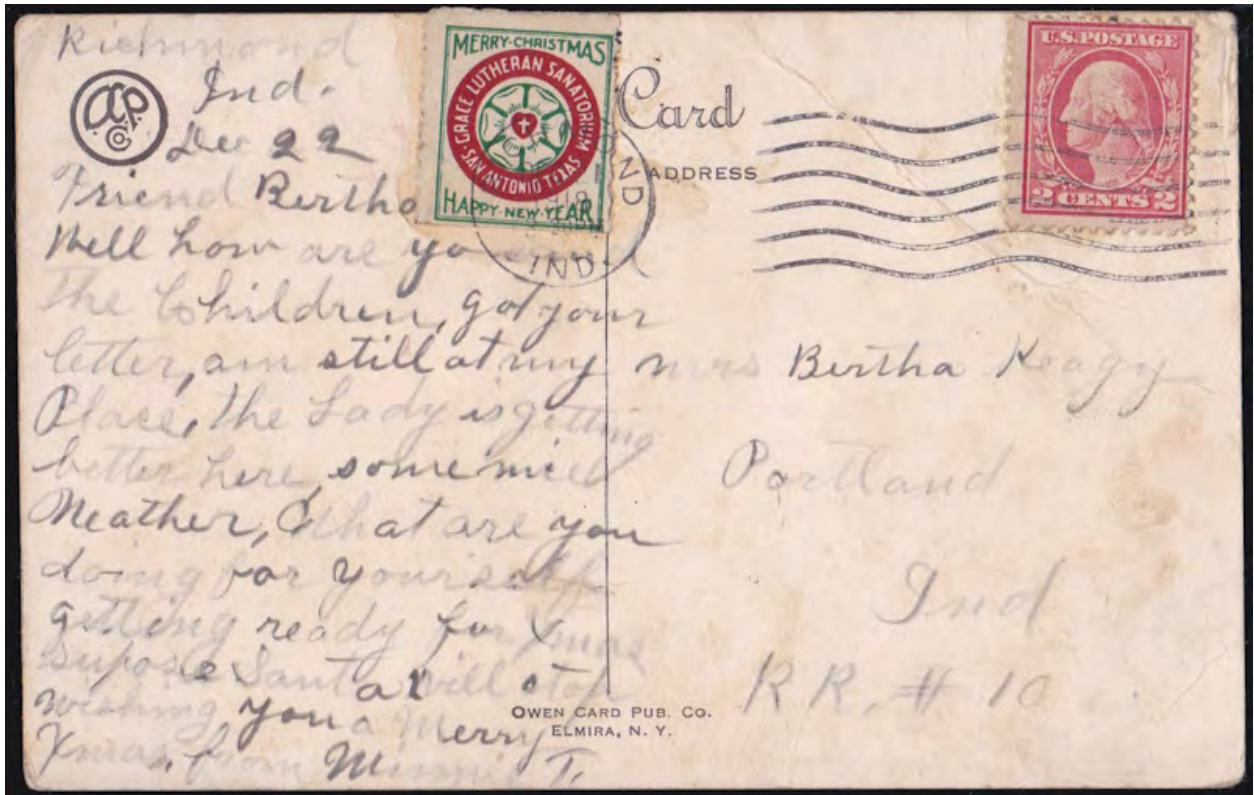 Richmond
Ind.
Dec 22
Friend Bertha
Well how are yo
the Children, got your
letter, am still at my
Place, the Lady is getting
better here, some nice
Weather, What are you
doing for yourself
getting ready for Xmas
supose Santa will stop
wishing you a Merry
Xmas, from Minnie T.
A.P.
Co.
MERRY-CHRISTMAS
GRACE LUTHERAN SANATORIUM
SAN ANTONIO TEXAS
HAPPY-NEW-YEAR
IND.
Card
ADDRESS
U.S. POSTAGE
2 CENTS 2
Mrs Bertha Keagy
Portland
Ind
R R. # 10
OWEN CARD PUB. CO.
ELMIRA, N. Y.